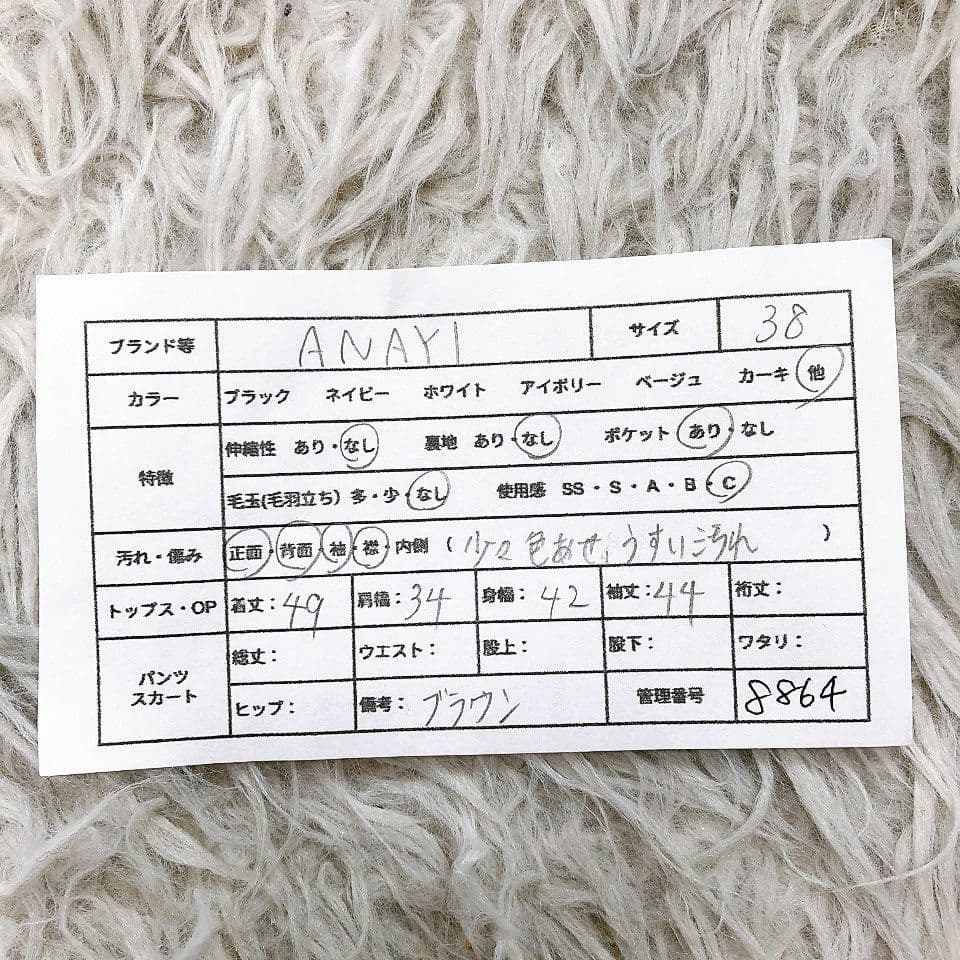 ブランド等 ANAYI サイズ 38
カラー ブラック ネイビー ホワイト アイボリー ベージュ カーキ 他
特徴 伸縮性 あり・なし 裏地 あり・なし ポケット あり・なし
毛玉(毛羽立ち) 多・少・なし 使用感 SS・S・A・B・C
汚れ・傷み 正面・背面・袖・襟・内側 ( 少々色あせ、うすい汚れ )
トップス・OP 着丈：49 肩幅：34 身幅：42 袖丈：44 裄丈：
パンツ スカート 総丈： ウエスト： 股上： 股下： ワタリ：
ヒップ： 備考：ブラウン 管理番号 8864